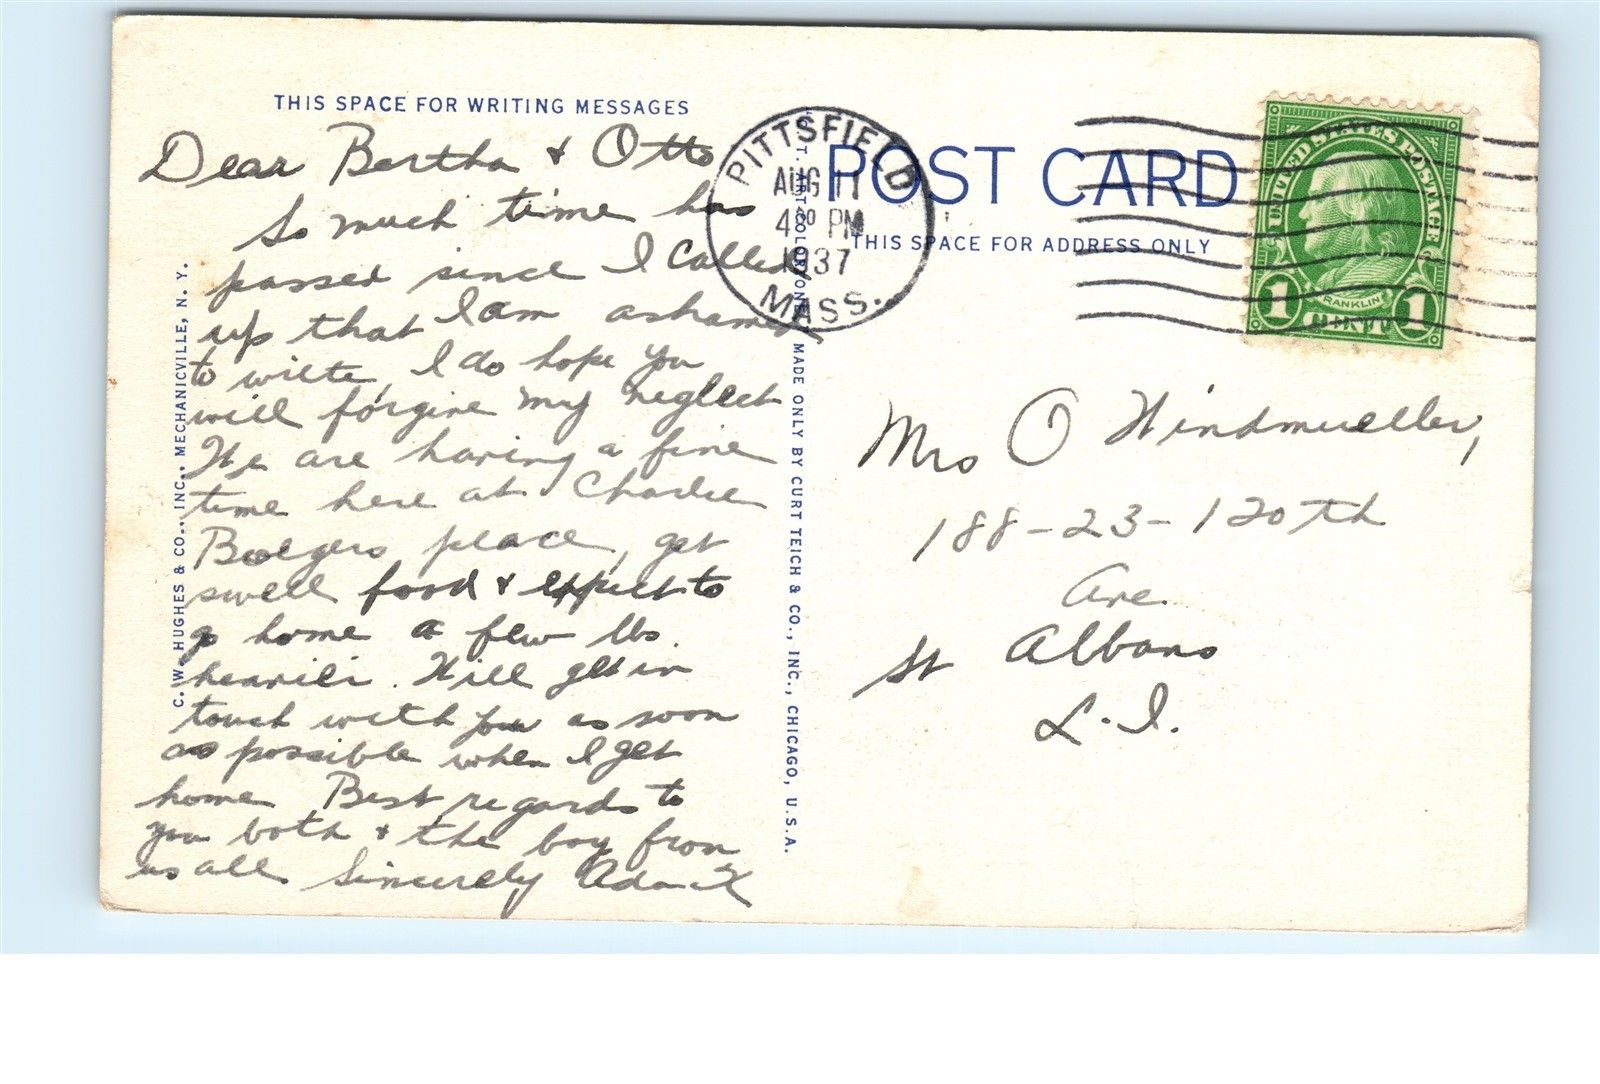 THIS SPACE FOR WRITING MESSAGES
Dear Bertha & Otto
So much time has
passed since I called
up that I am ashamed
to wilte, I do hope you
will forgive my neglect
We are having a fine
time here at Charlie
place, get
swell food & expect to
go home a few lbs.
heavier. Will get in
touch with you as soon
as possible when I get
home Best regards to
you both & the boy from
us all Sincerely
C. W. HUGHES & CO., INC., MECHANICVILLE, N. Y.
MADE ONLY BY CURT TEICH & CO., INC., CHICAGO, U.S.A.
PITTSFIELD
AUG 11
4 PM
1937
MASS.
POST CARD
THIS SPACE FOR ADDRESS ONLY
UNITED STATES POSTAGE
FRANKLIN
1 CENT 1
Mrs O Windmueller,
188-23-120th
Ave
St Albans
L.I.